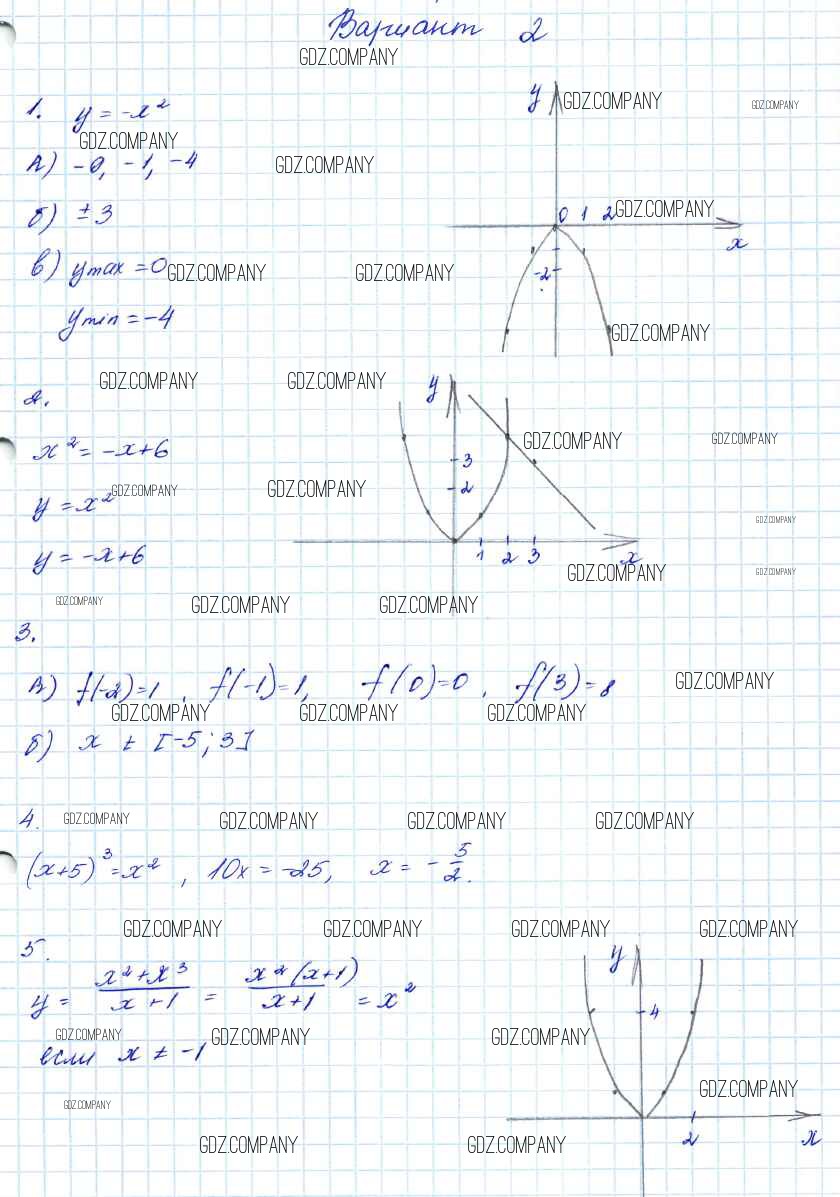 Вариант 2
GDZ.COMPANY
1. y = -x²
y GDZ.COMPANY GDZ.COMPANY
GDZ.COMPANY
А) -0, -1, -4 GDZ.COMPANY
б) ±3
0 1 2 GDZ.COMPANY
x
в) ymax = 0 GDZ.COMPANY GDZ.COMPANY
-2
ymin = -4
GDZ.COMPANY
GDZ.COMPANY GDZ.COMPANY y
2.
GDZ.COMPANY GDZ.COMPANY
x² = -x+6
3
2
y = x² GDZ.COMPANY GDZ.COMPANY
GDZ.COMPANY
y = -x+6
1 2 3 x
GDZ.COMPANY GDZ.COMPANY
GDZ.COMPANY GDZ.COMPANY GDZ.COMPANY
3.
А) f(-2)=1, f(-1)=1, f(0)=0, f(3)=8 GDZ.COMPANY
GDZ.COMPANY GDZ.COMPANY GDZ.COMPANY
б) x ± [-5; 3]
4. GDZ.COMPANY GDZ.COMPANY GDZ.COMPANY GDZ.COMPANY
(x+5)³ = x², 10x = -25, x = -5/2.
GDZ.COMPANY GDZ.COMPANY GDZ.COMPANY GDZ.COMPANY
5.
y
y = (x²+x³)/(x+1) = (x²(x+1))/(x+1) = x²
4
GDZ.COMPANY GDZ.COMPANY GDZ.COMPANY
если x ≠ -1
GDZ.COMPANY
GDZ.COMPANY
2 x
GDZ.COMPANY GDZ.COMPANY